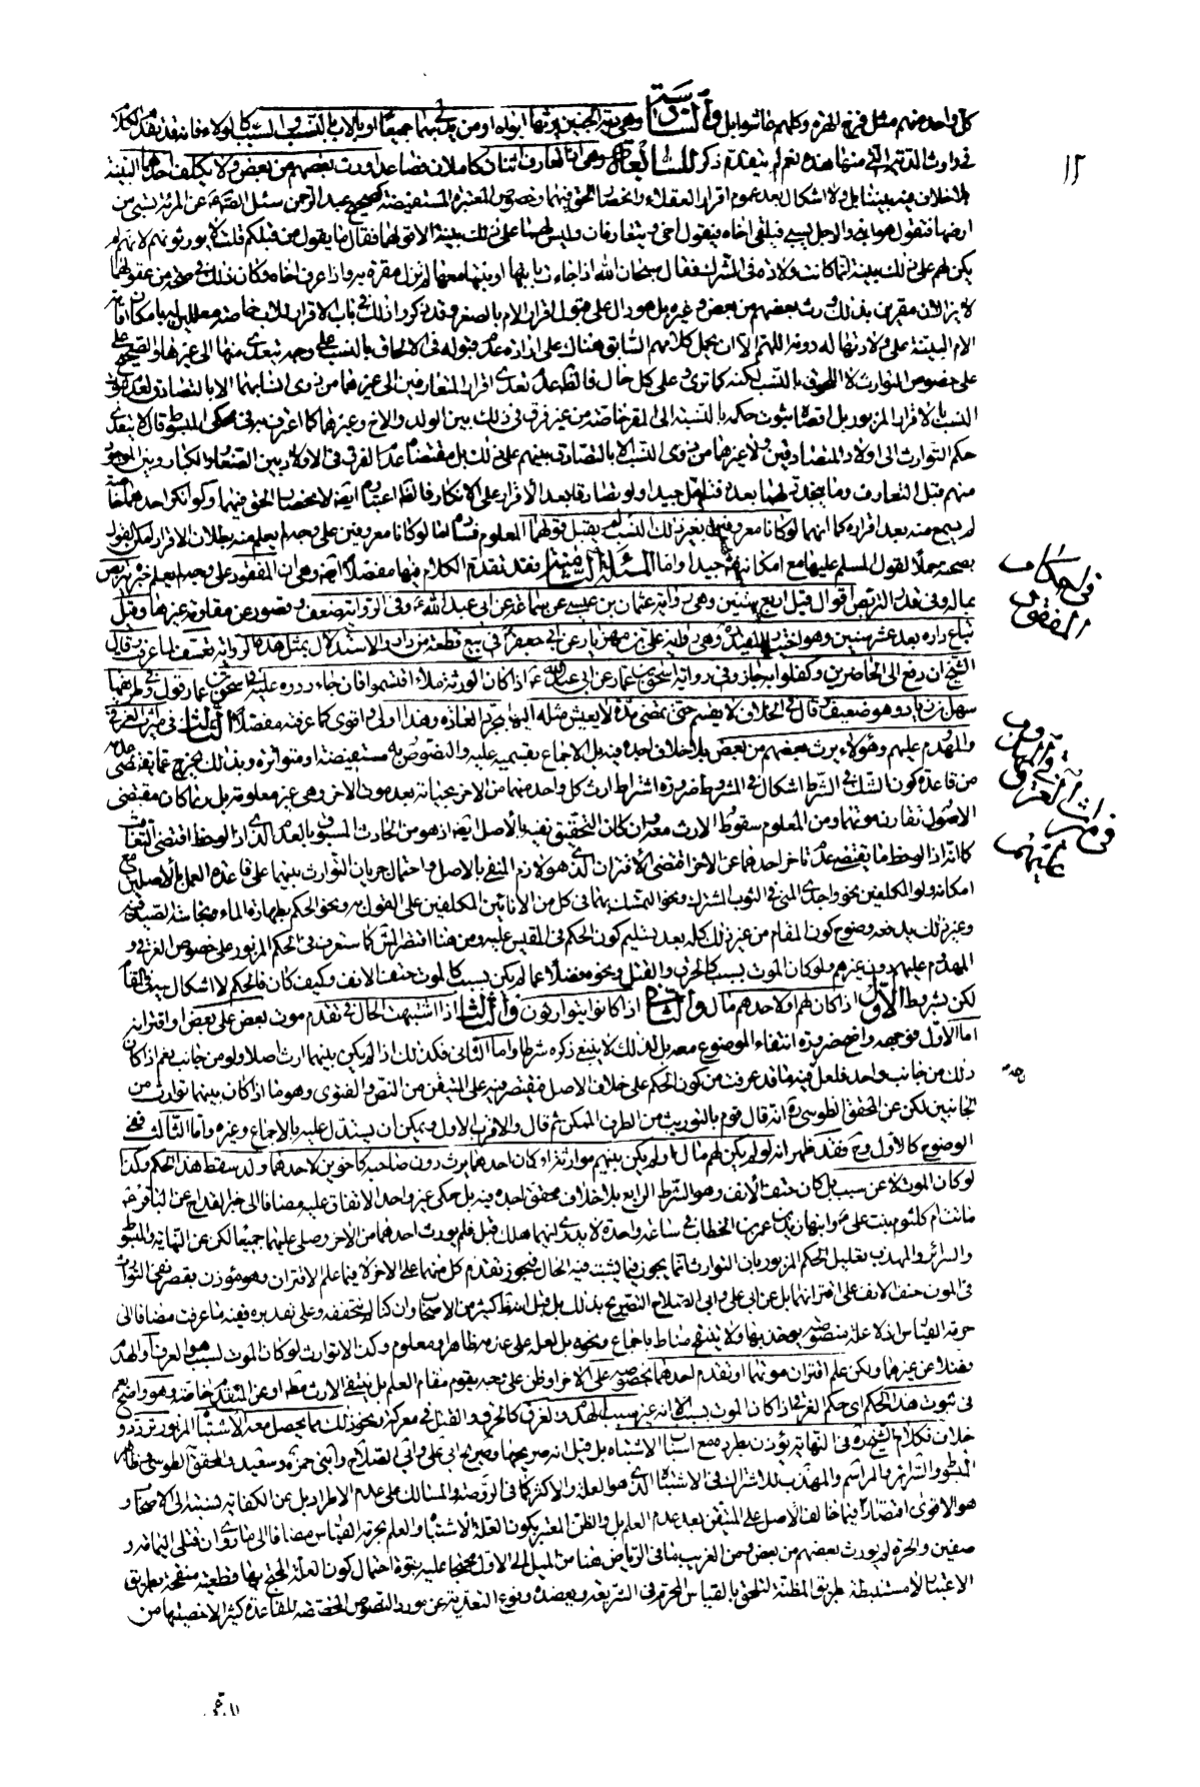 كل واحد منهم مثل فرج الهرة وكلهم فائتوا بل والسادسة وهي دية الجنين يرثها ابواه او من يدلي بهما جميعا او بالاب بالنسب والسبب كالولاء فانه قد تقدم الكلام
في وارث الدية التي منها هذه نعم لم يتقدم ذكر للسابعة وهي اذا تعارف اثنان كاملان فصاعدا ورث بعضهم من بعض ولا يكلف احدهما البينة
بلا خلاف فيه بيننا بل لا اشكال بعد عموم اقرار العقلاء وانحصار الحق فيهما وخصوص المعتبرة المستفيضة كصحيح عبد الرحمن سئل الصادق عن المرئة تسبى من
ارضها فتقول هو ابني والرجل يسبى فيلقى اخاه فيقول اخي ويتعارفان وليس لهما على ذلك بينة الا قولهما فقال ما يقول من قبلكم قلت لا يورثونهم لانهم لم
يكن لهم على ذلك بينة انما كانت ولادة في الشرك فقال سبحان الله اذا جاءت بابنها او بنتها معها لم تزل مقرة به واذا عرف اخاه وكان ذلك في صحة من عقولهما
لا يزالان مقرين بذلك ورث بعضهم من بعض وغيره بل هو دال على قبول اقرار الام بالصغير وقد ذكروا ذلك في باب الاقرار للاب خاصة معللين له بامكان اقامة
الام البينة على ولادتها له دونه اللهم الا ان يحمل كلامهم السابق هناك على ارادة عدم قبوله في الالحاق بالنسب على وجه يتعدى منهما الى غيرهما والصحيح على
على خصوص التوارث لا اللحوق بالنسب لكنه كما ترى وعلى كل حال فالظ عدم تعدي اقرار المتعارفين الى غيرهما من ذوي انسابهما الا بالتصادق لعدم ثبوت
النسب بالاقرار المزبور بل اقصاه ثبوت حكمه بالنسبة الى المقر خاصة من غير فرق في ذلك بين الولد والاخ وغيرهما كما اعترف به في محكى المبسوط قال لا يتعدى
حكم التوارث الى اولاد المتصادقين ولا غيرهما من ذوي النسب الا بالتصادق بينهم على ذلك بل مقتضاه عدم الفرق في الاولاد بين الصغار والكبار وبين الموجود
منهم قبل التعارف وما يتجدد لهما بعده فتأمل جيدا ولو تصادقا بعد الاقرار على الانكار فالظ اعتباره ايضا لانحصار الحق فيهما ولو انكر احدهما خاصة
لم يسمع منه بعد اقراره كما انهما لو كانا معروفين بغير ذلك النسب لم يقبل قولهما المعلوم فساده اما لو كانا معروفين على وجه لم يعلم منه بطلان الاقرار امكن القول
بصحته حملا لقول المسلم عليها مع امكانه فتأمل جيدا واما المسئلة الثامنة فقد تقدم الكلام فيها مفصلا ايضا وهي ان المفقود على وجه لم يعلم خبره يتربص
بماله وفي قدر التربص اقوال قيل اربع سنين وهي رواية عثمان بن عيسى عن سماعة عن ابي عبد الله ع وفي الرواية ضعف وقصور عن مقاومة غيرها وقيل
تباع داره بعد عشر سنين وهو اختيار المفيد ره وهي رواية علي بن مهزيار عن ابي جعفر ع في بيع قطعة من داره والاستدلال بمثل هذه الرواية تعسف لما عرفت قال
الشيخ ان دفع الى الحاضرين وكفلوا به جاز وفي رواية اسحق بن عمار عن ابي عبد الله ع اذا كان الورثة ملاء اقتسموا فان جاء ردوه عليه في اسحق بن عمار قول وفي طريقها
سهل بن زياد وهو ضعيف وقال في الخلاف لا يقسم حتى يمضي مدة لا يعيش مثله اليها بمجرى العادة وهذا اولى واقوى كما عرفته مفصلا الثالث في ميراث الغرقى
والمهدوم عليهم وهؤلاء يرث بعضهم من بعض بلا خلاف اجده فيه بل الاجماع بقسميه عليه والنصوص به مستفيضة او متواترة وبذلك يخرج عما يقتضي
من قاعدة كون الشك في الشرط اشكال في المشروط ضرورة اشتراط ارث كل واحد منهما من الاخر بحياته بعد موت الاخر وهي غير معلومة بل ربما كان مقتضى
الاصول تقارن موتهما ومن المعلوم سقوط الارث معه وان كان التحقيق نفيه بالاصل ايضا اذ هو من الحادث المسبوق بالعدم الذي اذا لوحظ اقتضى التعاقب
كما انه اذا لوحظ ما يقتضيه عدم تاخر احدهما عن الاخر اقتضى الاقتران الذي هو لازم النفي بالاصل واحتمال جريان التوارث بينهما على قاعدة العمل بالاصلين مع
امكانه ولو المكلفين نحو واجدي المني في الثوب المشترك ونحو التمسك بهما في كل من الانائين المكلفين على القول به ونحو الحكم بطهارة الماء ونجاسة الصيد فيه
وغير ذلك يدفعه وضوح كون المقام من غير ذلك كله بعد تسليم كون الحكم في المقيس عليه ومن هنا اقتصر الش كما ستعرف في الحكم المزبور على خصوص الغرقى و
المهدوم عليهم دون غيرهم ولو كان الموت بسبب كالحرق والقتل ونحوه فضلا عما لم يكن بسبب كالموت حتف الانف وكيف كان فالحكم لا اشكال فيه في المقام
لكن بشروط الاول اذا كان لهم او لاحدهم مال والثاني اذا كانوا يتوارثون والثالث اذا اشتبهت الحال في تقدم موت بعض على بعض او اقترانه
اما الاول فوجهه واضح ضرورة انتفاء الموضوع معه بل لذلك لا ينبغي ذكره شرطا واما الثاني فكذلك اذا لم يكن بينهما ارث اصلا ولو من جانب نعم اذا كان
ذلك من جانب واحد فلعل فيه ما قد عرفت من كون الحكم على خلاف الاصل فيقتصر فيه على المتيقن من النص والفتوى وهو ما اذا كان بينهما توارث من
الجانبين لكن عن المحقق الطوسي ره انه قال قوم بالتوريث من الطرف الممكن ثم قال والاقرب الاول ويمكن ان يستدل عليه بالاجماع وغيره واما الثالث ففي
الوضوح كالاول وح فقد ظهر انه لو لم يكن لهم مال او لم يكن بينهم موارثة او كان احدهما يرث دون صاحبه كاخوين لاحدهما ولد سقط هذا الحكم وكذا
لو كان الموت لا عن سبب بل كان حتف الانف وهو الشرط الرابع بلا خلاف محقق اجده فيه بل حكى غير واحد الاتفاق عليه مضافا الى خبر القداح عن الباقر ع
ماتت ام كلثوم بنت علي ع وابنها زيد بن عمر بن الخطاب في ساعة واحدة لا يدرى ايهما هلك قبل فلم يورث احدهما من الاخر وصلى عليهما جميعا لكن عن النهاية والمبسوط
والسرائر والمهذب تعليل الحكم المزبور بان التوارث انما يجوز فيما يشتبه فيه الحال فيجوز تقدم كل منهما على الاخر لا فيما علم الاقتران وهو مؤذن بقصر نفي التوارث
في الموت حتف الانف على اقترانهما بل عن ابي علي وابي الصلاح التصريح بذلك بل قيل انه ظ كثير من الاصحاب وان كنا لم نتحققه وعلى تقديره ففيه ما عرفت مضافا الى
حرمة القياس اذ لا علة منصوصة يؤخذ بها ولا ينقح مناط باجماع ونحوه بل لعله على عدمه ظاهر ومعلوم وكذا لا توارث لو كان الموت لسبب هو الغرق والهدم
فضلا عن غيرهما ولكن علم اقتران موتهما او تقدم احدهما بخصوصه على الاخر او ظن على وجه يقوم مقام العلم بل ينتفي الارث مطلقا او عن المتقدم خاصة وهو واضح نعم
في ثبوت هذا الحكم اي حكم الغرقى اذا كان الموت بسبب الا انه غير سبب الهدم والغرق كالحرق والقتل في معركة ونحو ذلك مما يحصل معه الاشتباه المزبور تردد و
خلاف فكلام الشيخ ره في النهاية يؤذن بطرده مع اسباب الاشتباه بل قيل انه صريحها وصريح ابي علي وابي الصلاح وابني حمزة وسعيد والمحقق الطوسي وظاهر
المبسوط والسرائر والمراسم والمهذب للاشتراك في الاشتباه الذي هو العلة والاكثر كما في الروضة والمسالك على عدم الاطراد بل عن الكفاية نسبته الى الاصحاب و
هو الاقوى اقتصارا فيما خالف الاصل على المتيقن بعد عدم العلم بل والظن المعتبر بكون العلة الاشتباه والعلم بحرمة القياس مضافا الى ما روى ان قتلى اليمامة و
صفين والحرة لم يورث بعضهم من بعض ومن الغريب ما في الرياض هنا من الميل الى الاول محتجا عليه بقوة احتمال كون العلة المحتج بها قطعية منقحة بطريق
الاعتبار لا مستنبطة بطريق المظنة لتلحق بالقياس المحرم في الشريعة ويعضده وقوع التعدية عن مورد النصوص المخصصة للقاعدة كثيرا لاخصيتها من
١٢
في احكام
المفقود
في ميراث الغرقى
والمهدوم
عليهم